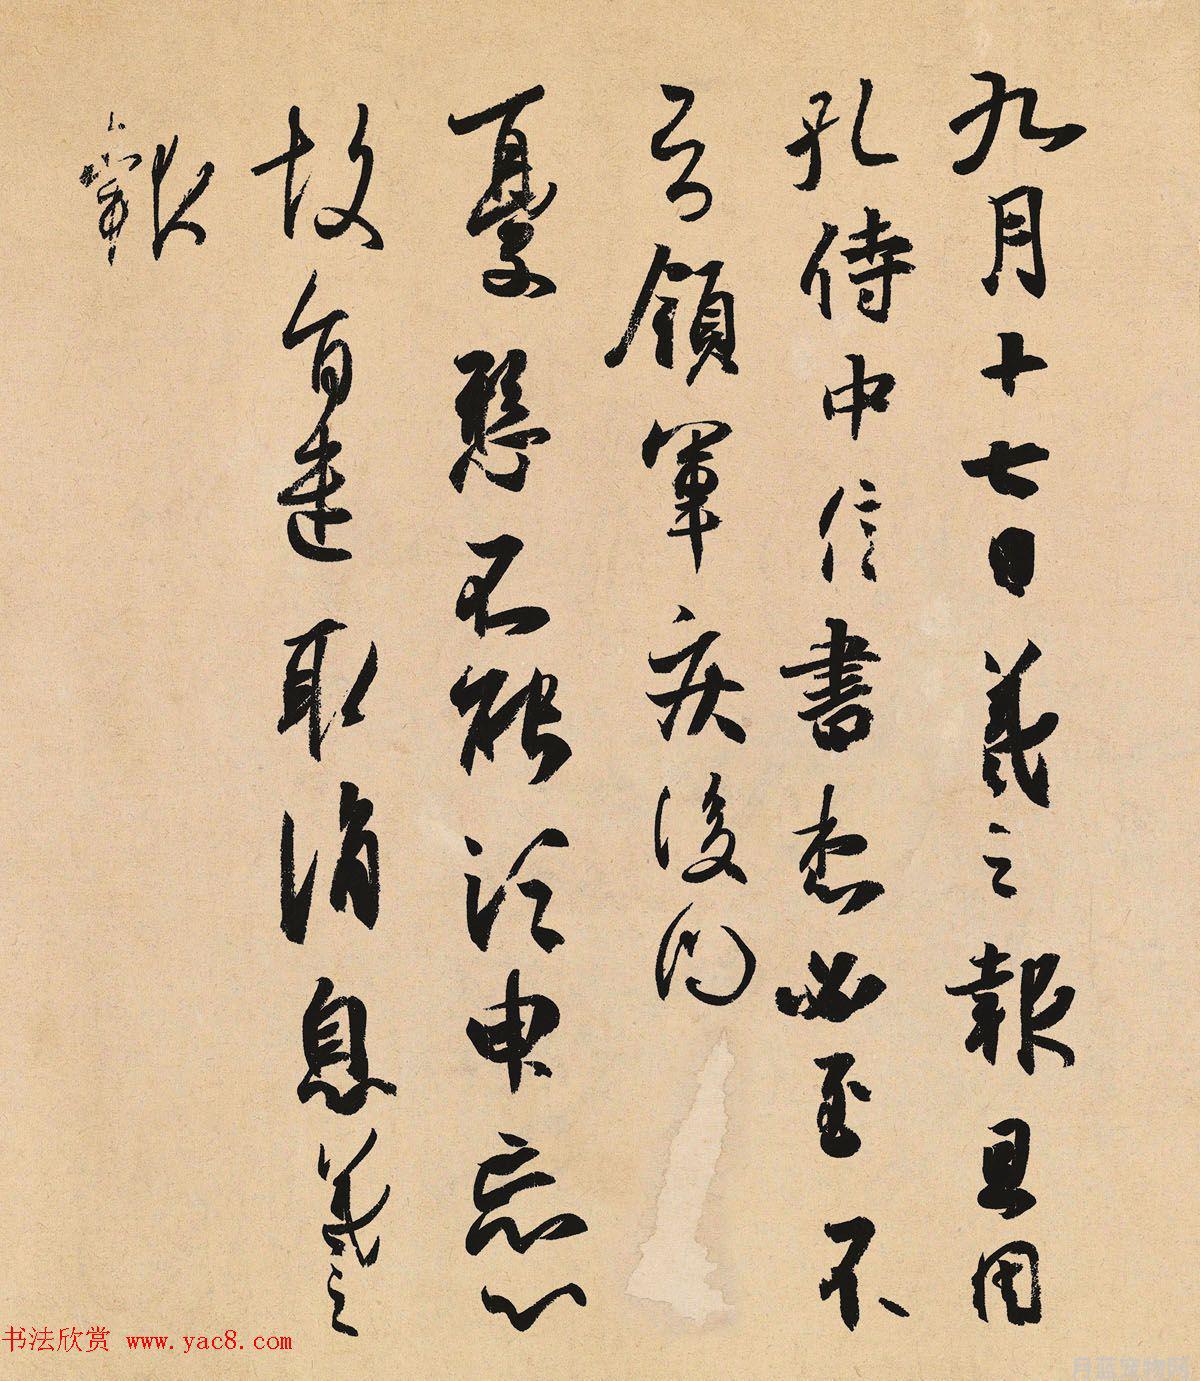 九月十七日羲之報且因
孔侍中信書想必至不
知領軍疾後問
憂懸不能須臾忘心
故旨遣取消息羲之
報
书法欣赏 www.yac8.com
月蓝宠物网